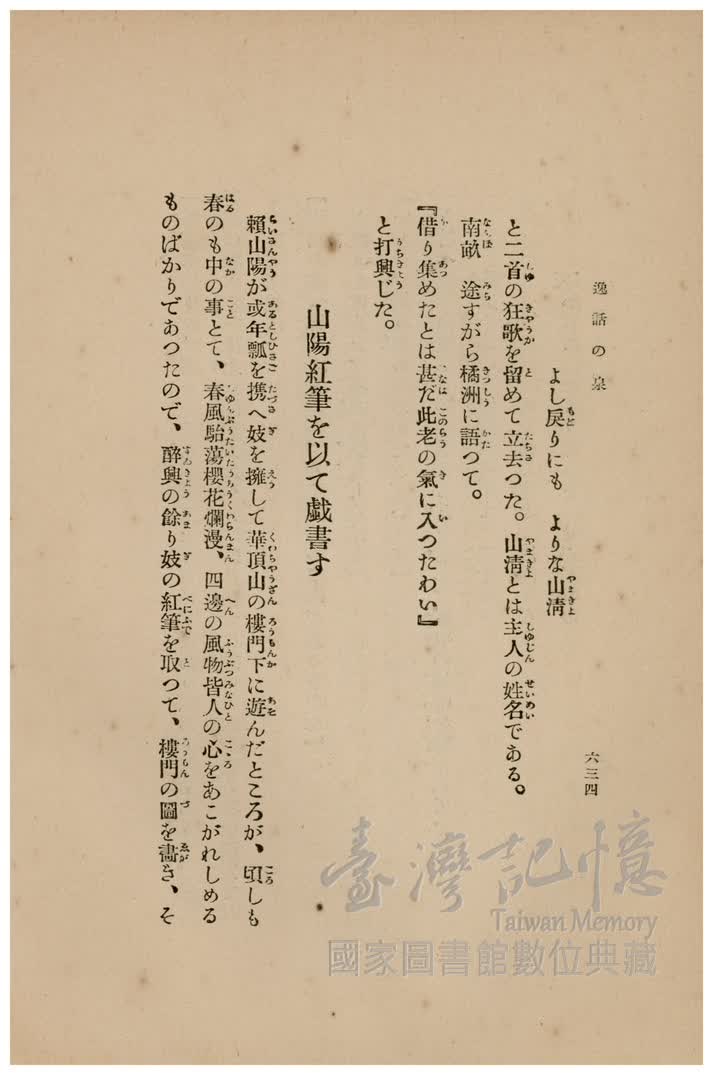 逸話の泉
六三四
よし戻りにも よりな山淸
と二首の狂歌を留めて立去つた。山淸とは主人の姓名である。
南畝 途すがら橘洲に語つて。
『借り集めたとは甚だ此老の氣に入つたわい』
と打興じた。
山陽紅筆を以て戯書す
賴山陽が或年瓢を携へ妓を擁して華頂山の樓門下に遊んだところが、頃しも
春のも中の事とて、春風駘蕩櫻花爛漫、四邊の風物皆人の心をあこがれしめる
ものばかりであつたので、醉興の餘り妓の紅筆を取つて、樓門の圖を畵き、そ
臺灣記憶
Taiwan Memory
國家圖書館數位典藏